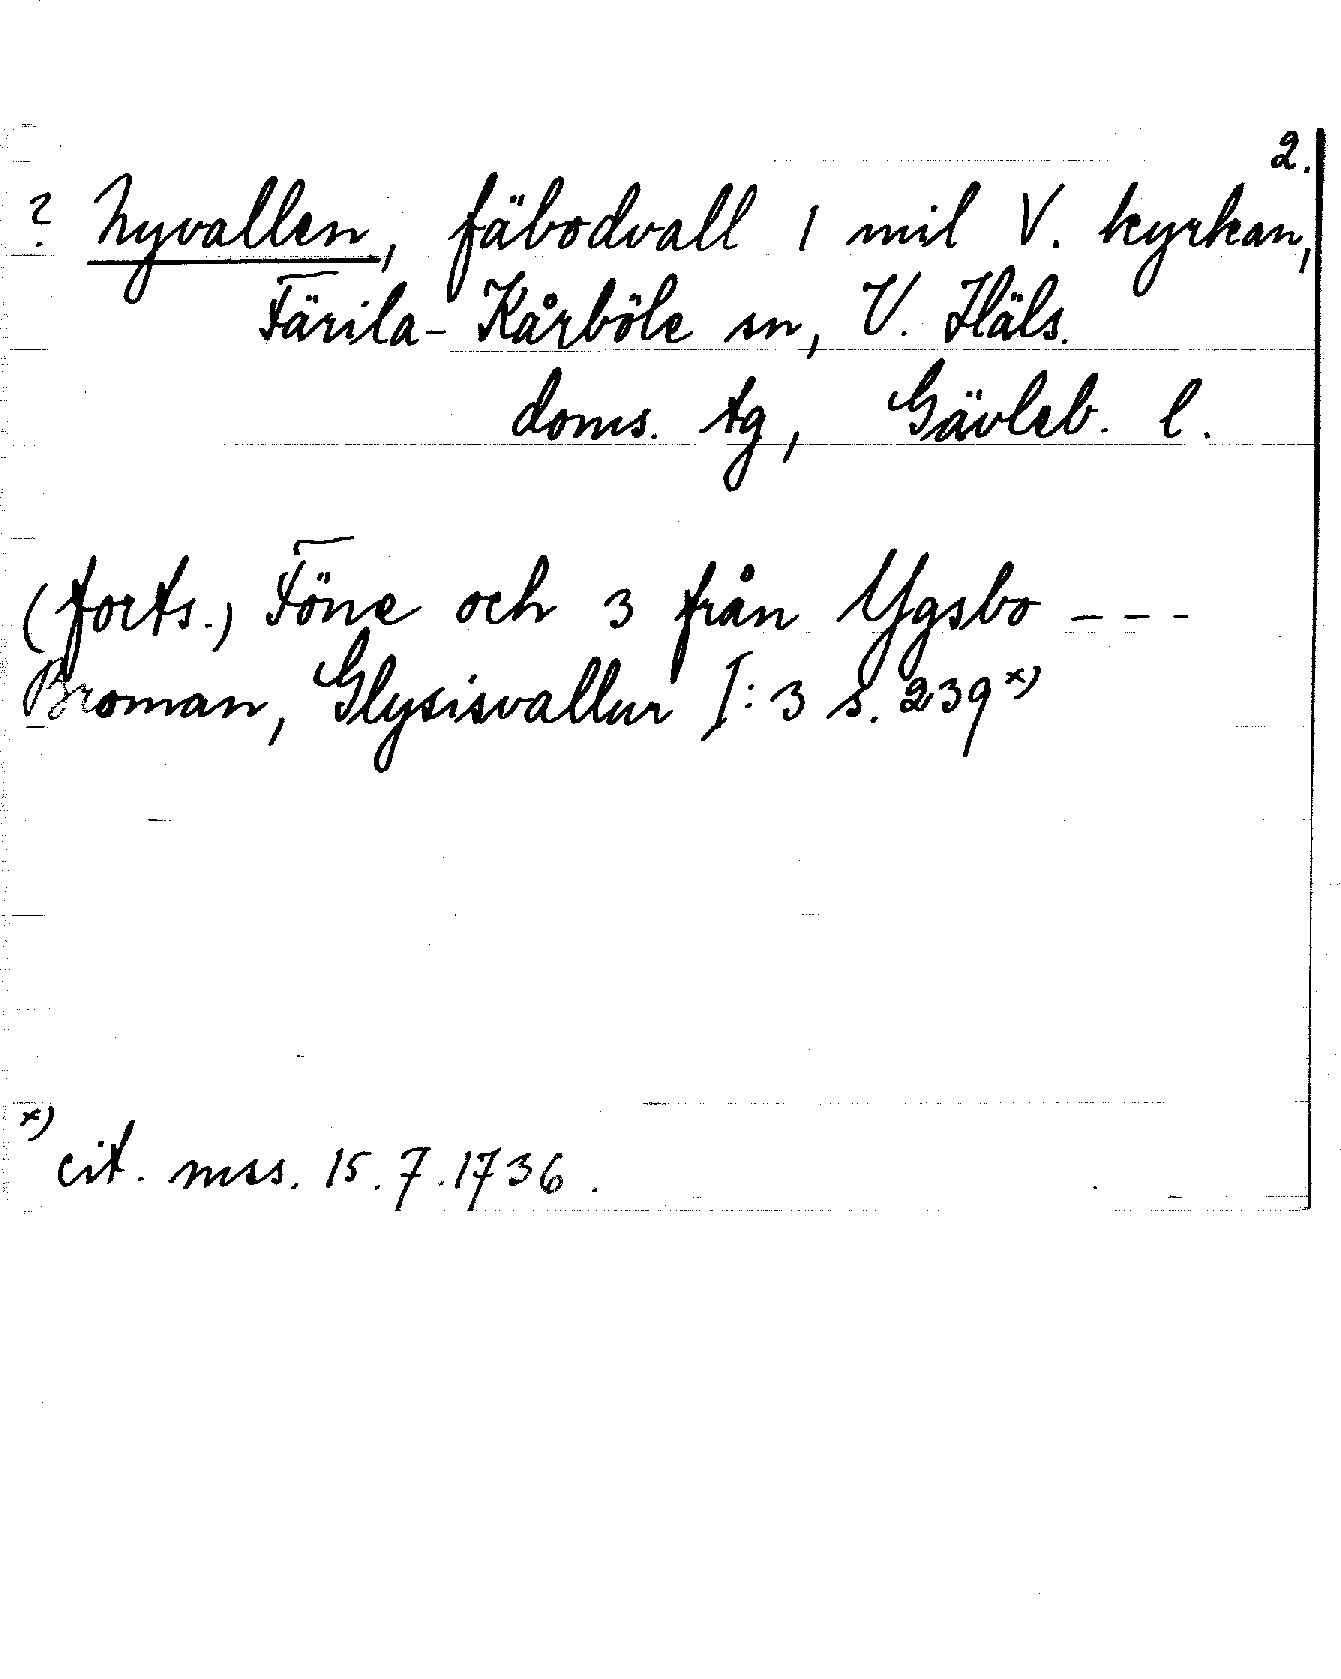 2.
? Nyvallen, fäbodvall 1 mil V. kyrkan,
Färila-Kårböle sn, V. Häls.
doms. tg, Gävleb. l.
(forts.) Föne och 3 från Ygsbo ---
Broman, Glysisvallur I:3 s. 239 x)
x) cit. mss. 15.7.1736.